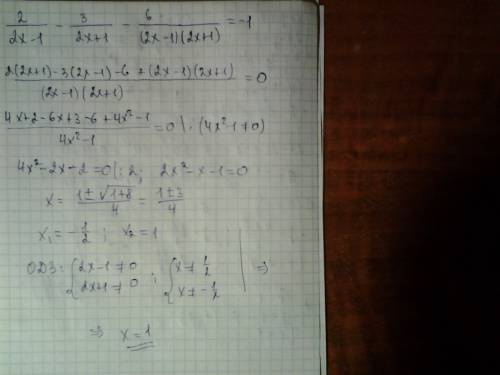 2/(2x-1) - 3/(2x+1) - 6/((2x-1)(2x+1)) = -1
(2(2x+1)-3(2x-1)-6+(2x-1)(2x+1))/((2x-1)(2x+1)) = 0
(4x+2-6x+3-6+4x²-1)/(4x²-1) = 0 | · (4x²-1≠0)
4x²-2x-2=0 |:2; 2x²-x-1=0
x = (1±√(1+8))/4 = (1±3)/4
x₁ = -1/2; x₂ = 1
ОДЗ: { 2x-1≠0 ; { x≠1/2 | ⇒
{ 2x+1≠0 { x≠-1/2
⇒ x=1